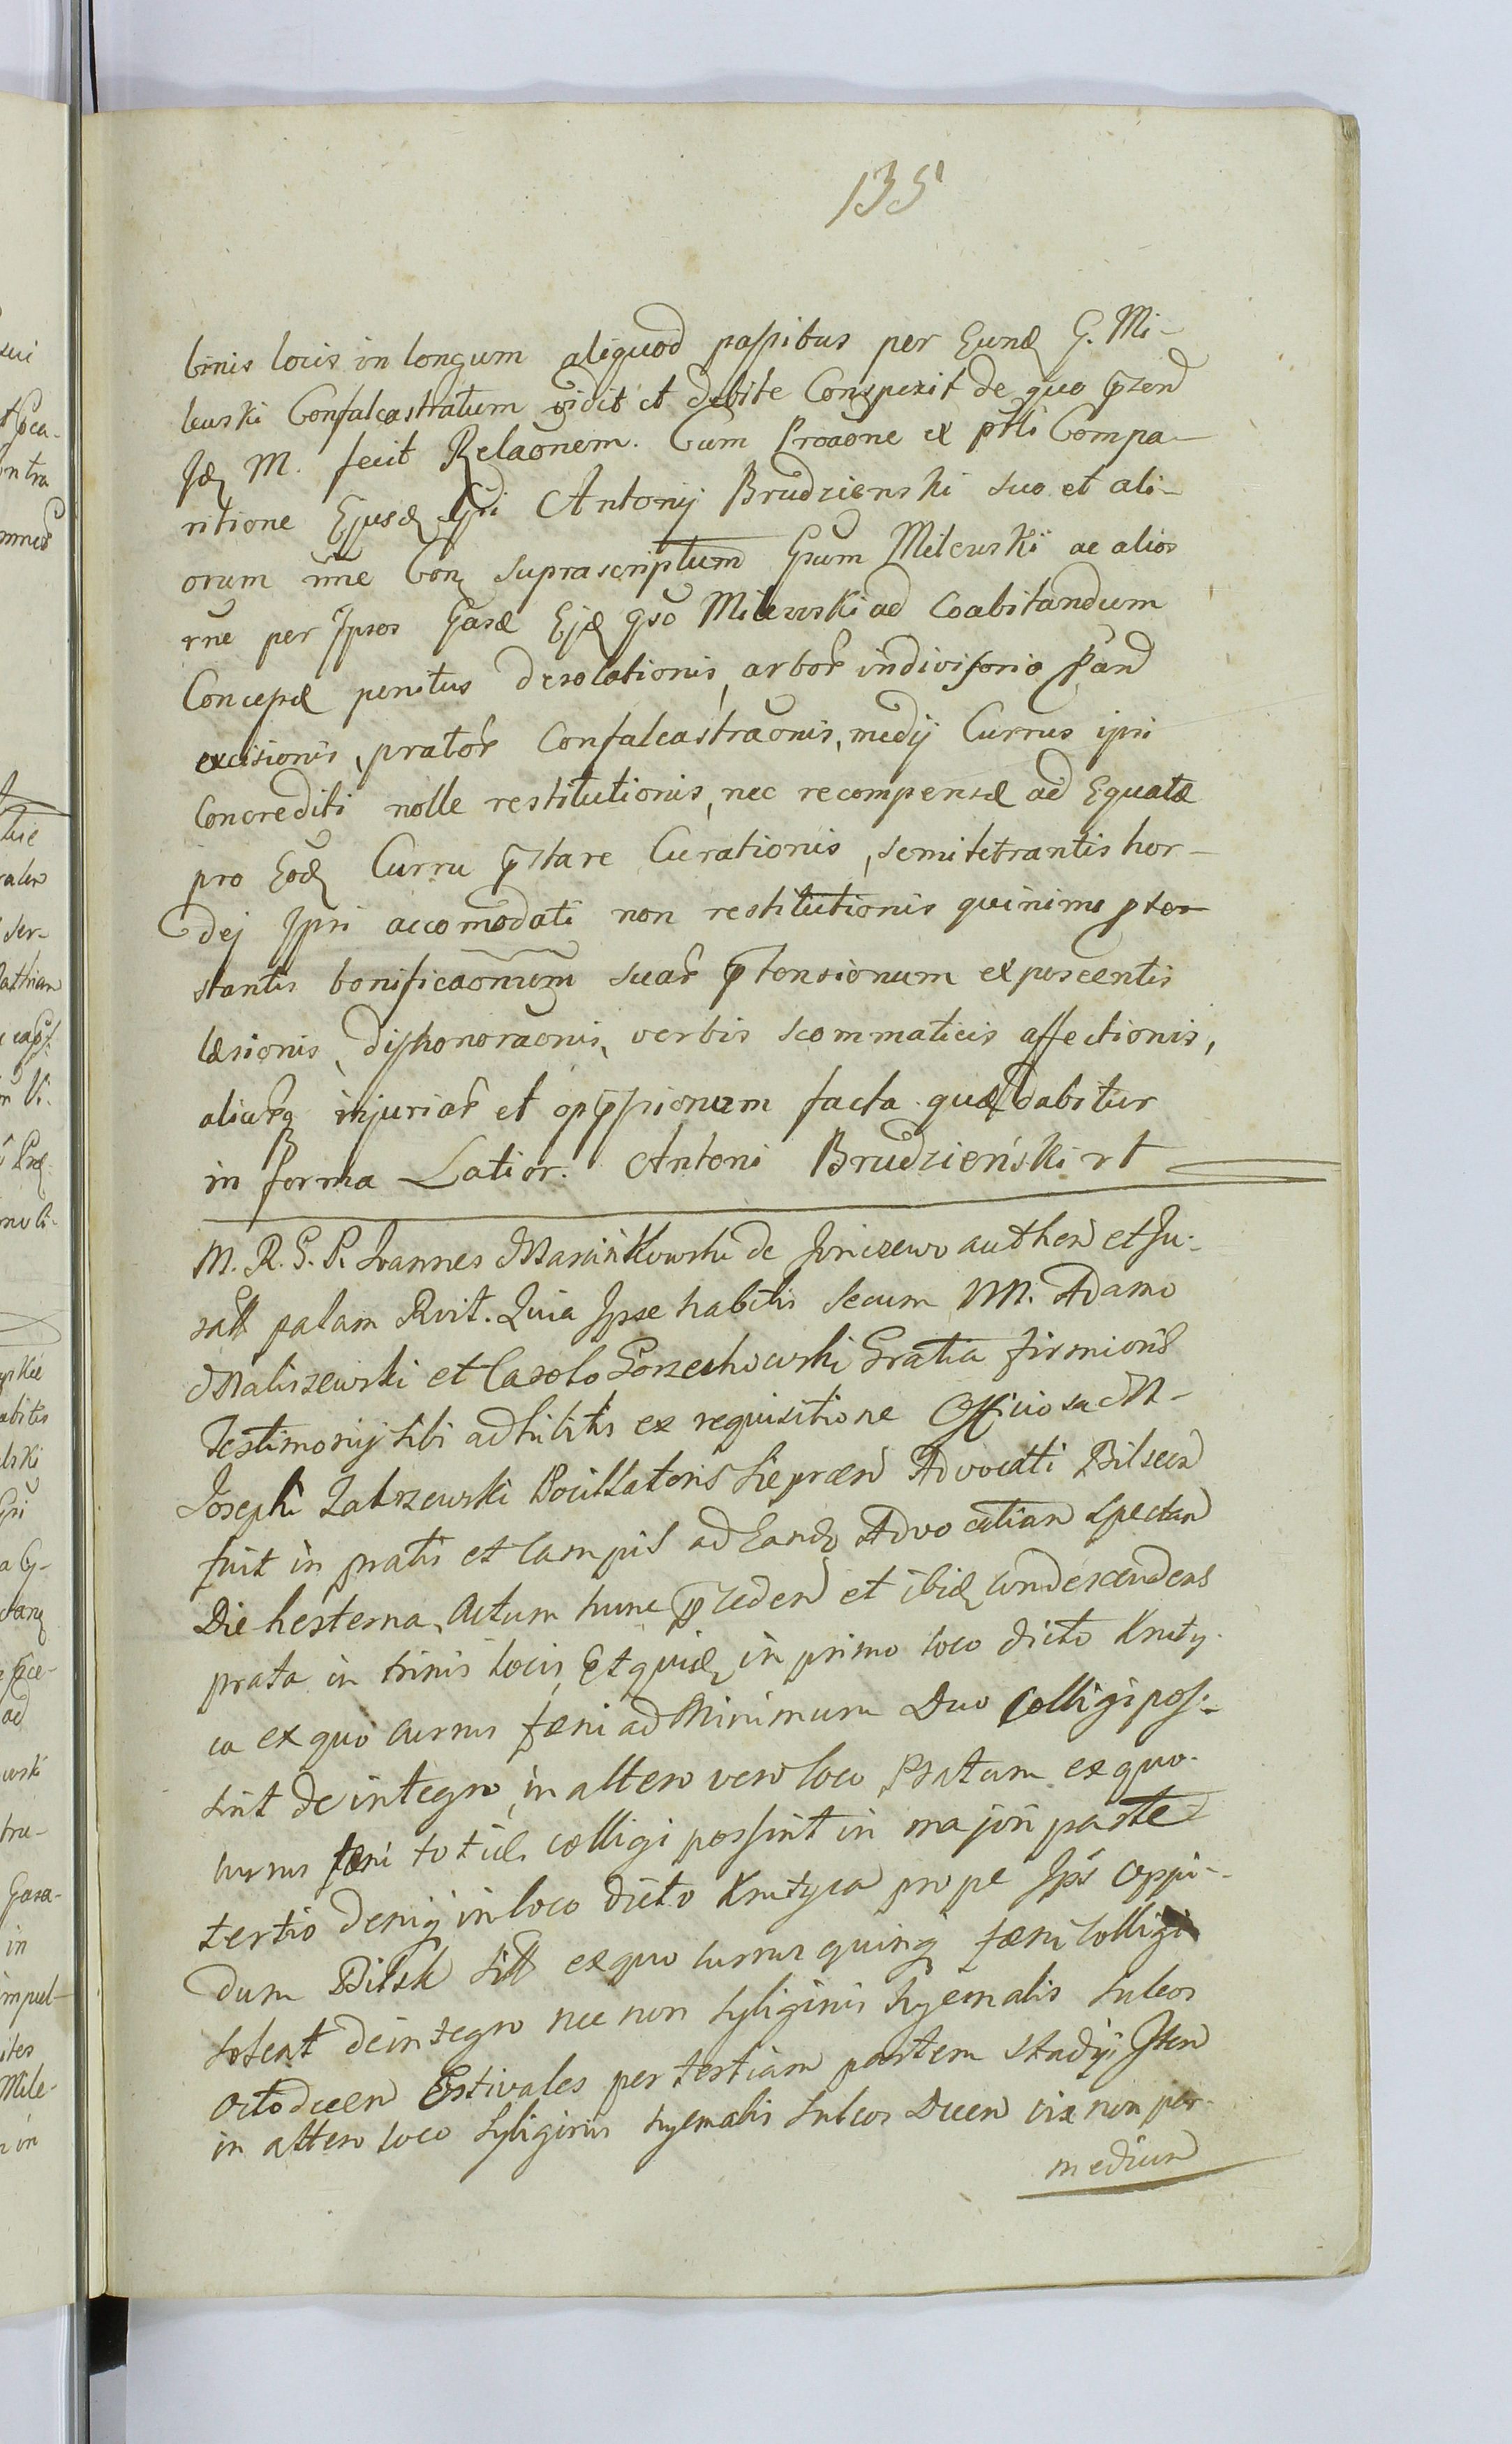 135
binis locis in longum aliquod passibus per Eund G. Mi-
lewski Confalcastratum vidit et debite Conspexit de quo przend
Jd M. fecit Relaonem. Cum Proaone ex prsti Compa-
ritione Ejusd Gsi Antonij Brudzienski suo et ali-
orum nne Con suprascriptum Gsum Milewski ac alios
rne per Ipsos Casæ Ejd gso Milewski ad Coabitandum
Concessæ penitus desolationis, arbor indivisorio stand
excisionis, prator Confalcastraonis, medij Currus ipsi
Concrediti nolle restitutionis, nec recompensæ ad Equatæ
pro Eod Curru pstare Curationis, semitetrantis hor-
dej Ipsi accomodati non restitutionis quinimo
stantis bonificaonem suar ptensionum exposcentis
læsionis, dishonoraonis, verbis scommaticis affectionis,
aliarq injuriar et oppssionum facta quæ dabitur
in forma Latior. Antoni Brudzieński rt
M. R. G. P. Joannes Maśinkowski de Joniczewo authen et Ju-
ratt palam Rvit. Quia Ipse habitis secum MM. Adamo
Maliszewski et Carolo Gorzechowski Gratia firmioris
Testimonij sibi adhibitis ex requisitione Officiosa M-
Josephi Zaborzewski Pocillatoris Lieprasn Advocati Bilscen
fuit in pratis et Campis ad Eand Advocatiam spectan
Die hesterna, Actum hunc pceden et ibid condescendens
prata in trinis locis, Et quid in primo loco dicto Kruty-
ca ex quo currus fæni ad Minimum Duo Colligi pos-
sint de integro, in altero vero loco Pratum ex quo
currus fæni totid colligi possint in majori parte
tertio deniq in loco dicto Krutyca prope Ips Oppi-
dum Bilsk sitt ex quo currus quinq fæni colligi
solent de integro nec non syliginis hyemalis sulcos
octodecem Estivales per tertiam partem stadij Item
in altero loco syliginis hyemalis sulcos Decem vix non per
medium